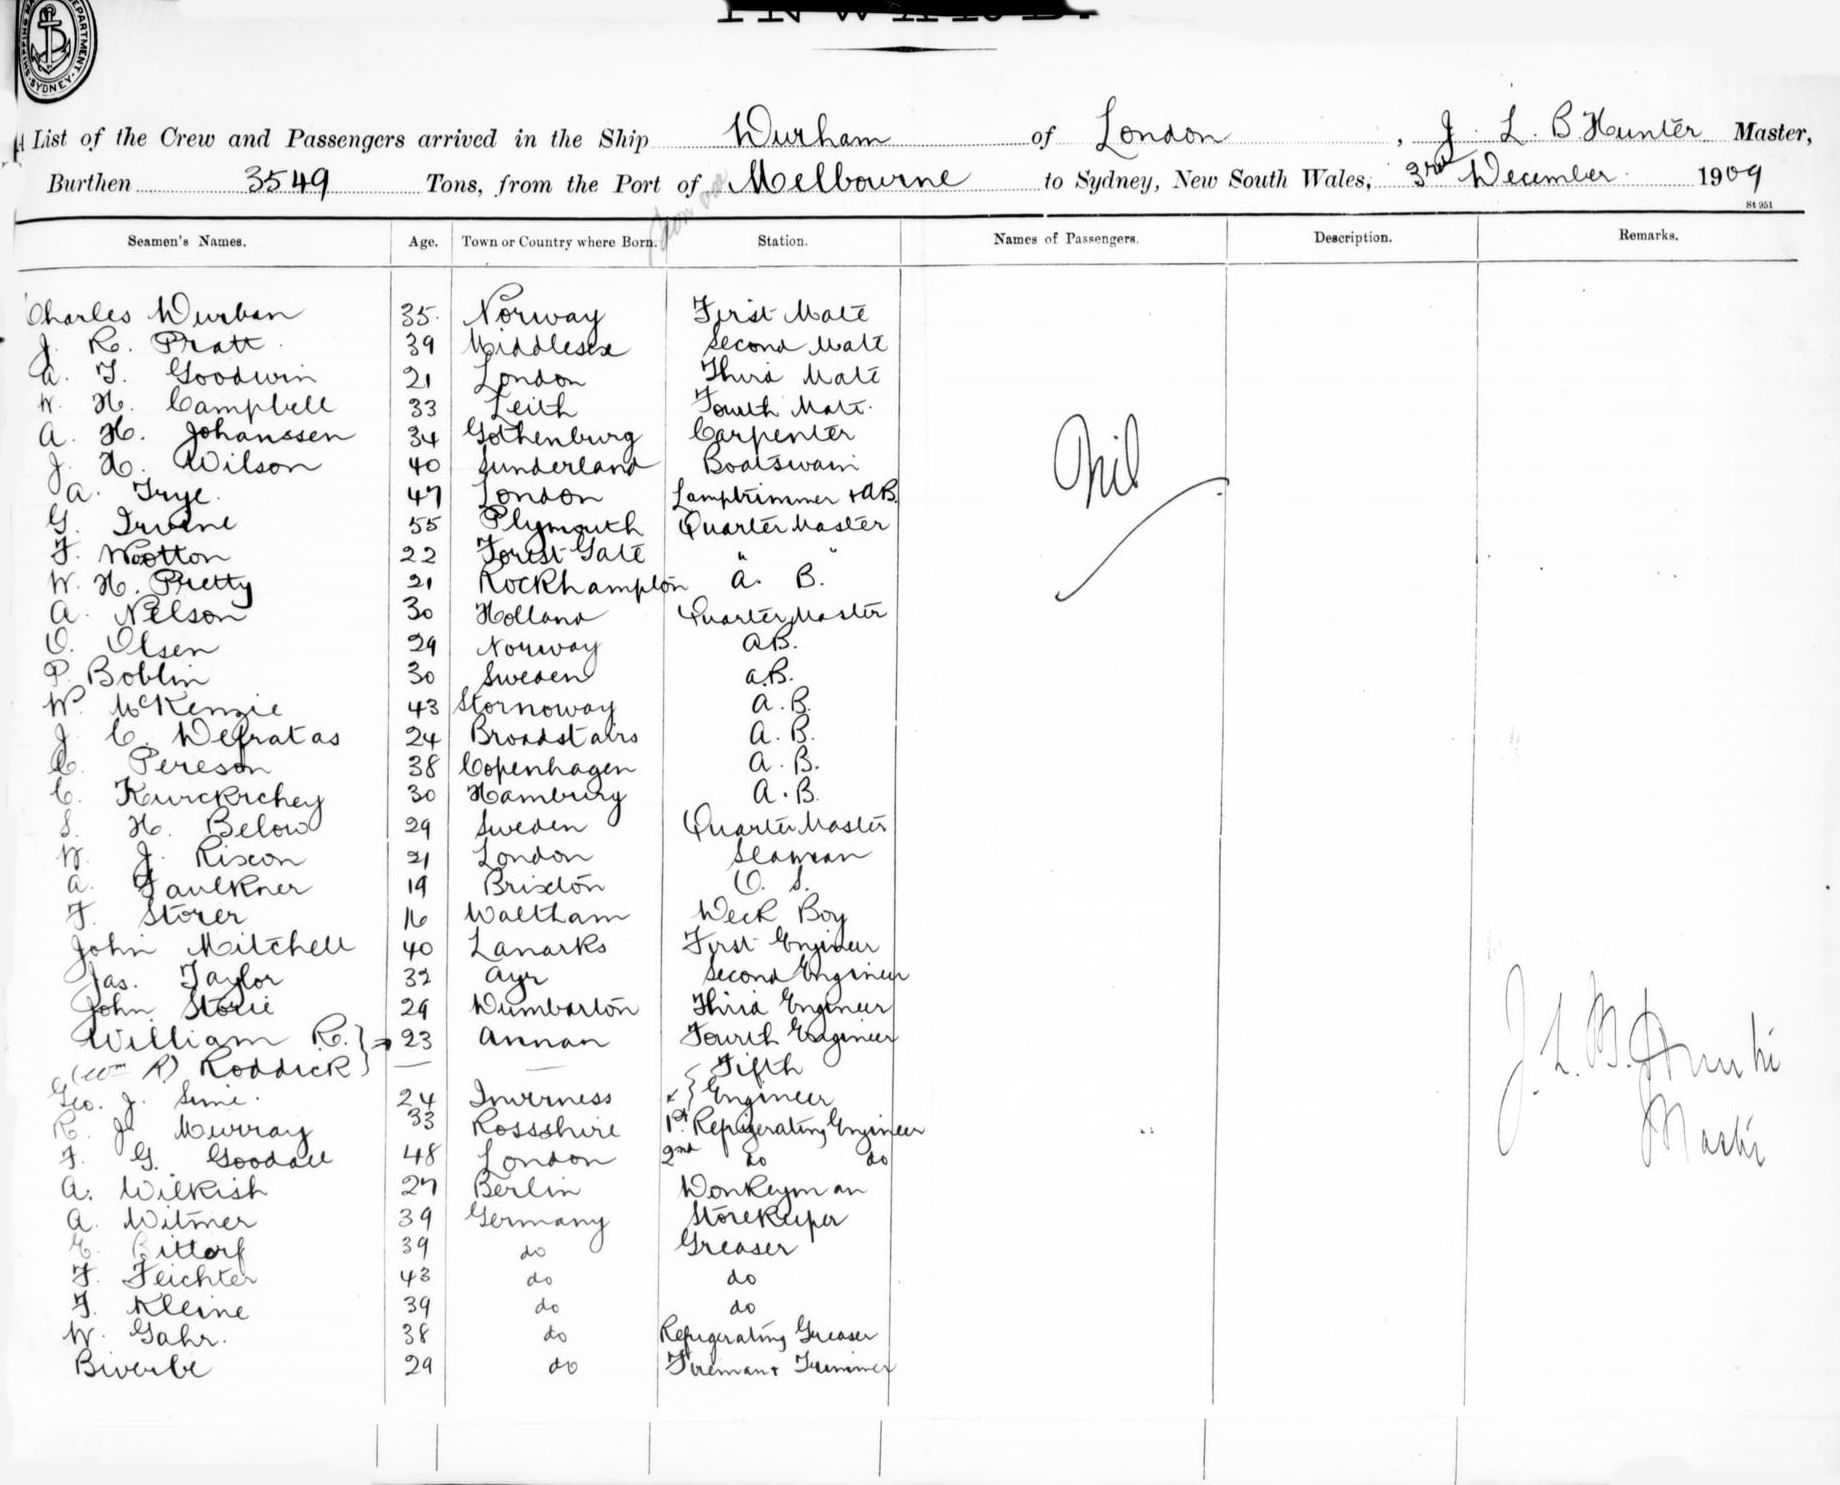 INWARD.
SHIPPING MASTER'S DEPARTMENT. SYDNEY.
A List of the Crew and Passengers arrived in the Ship Durham of London, J. L. B. Hunter Master,
Burthen 3549 Tons, from the Port of Melbourne to Sydney, New South Wales, 3rd December 1909
St 951
Seamen's Names. Age. Town or Country where Born. Station. Names of Passengers. Description. Remarks.
Charles Durban 35 Norway First Mate
J. R. Pratt 39 Middlesex Second Mate
A. T. Goodwin 21 London Third Mate
W. H. Campbell 33 Leith Fourth Mate
A. H. Johanssen 34 Gothenburg Carpenter
J. H. Wilson 40 Sunderland Boatswain
Nil
A. Frye. 47 London Lamptrimmer & AB.
G. Irvine 55 Plymouth Quarter Master
F. Wootton 22 Forest Gate " "
W. H. Pretty 21 Rockhampton A. B.
A. Nelson 30 Holland Quarter Master
O. Olsen 29 Norway AB.
P. Boblin 30 Sweden a.B.
W. McKenzie 43 Stornoway A. B.
J. C. Defratas 24 Broadstairs A. B.
C. Pereson 38 Copenhagen A. B.
C. Kurckrchey 30 Hamburg A. B.
S. H. Below 29 Sweden Quarter Master
W. J. Rixon 21 London Seaman
A. Faulkner 19 Brixton O. S.
F. Storer 16 Waltham Deck Boy
John Mitchell 40 Lanarks First Engineer
Jas. Taylor 32 Ayr Second Engineer
John Storie 29 Dumbarton Third Engineer
William R. } 23 Annan Fourth Engineer
(Wm R) Roddick } — — Fifth
Geo. J. Sime. 24 Inverness Engineer
J. L. B. Hunter
Master
R. J. Murray 33 Rossshire 1st Refrigerating Engineer
F. G. Goodall 48 London 2nd do do
A. Wilkish 27 Berlin Donkeyman
A. Witmer 39 Germany Storekeeper
E. Bittorf 39 do Greaser
F. Feichter 43 do do
F. Kleine 39 do do
W. Gahr. 38 do Refrigerating Greaser
Biverbe 29 do Fireman & Trimmer